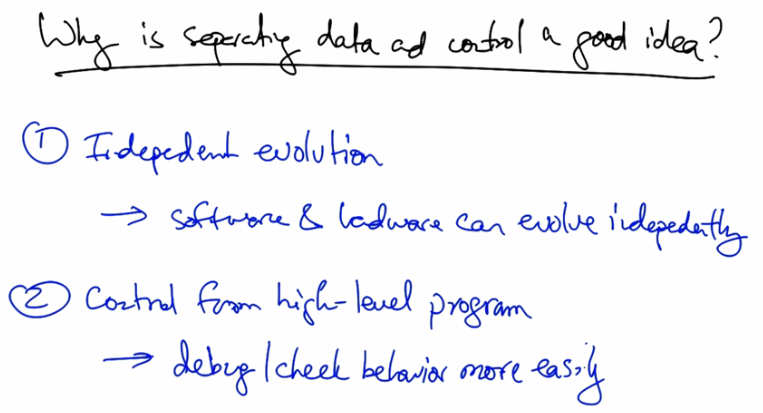 Why is separating data and control a good idea?
① Independent evolution
→ software & hardware can evolve independently
② Control from high-level program
→ debug/check behavior more easily